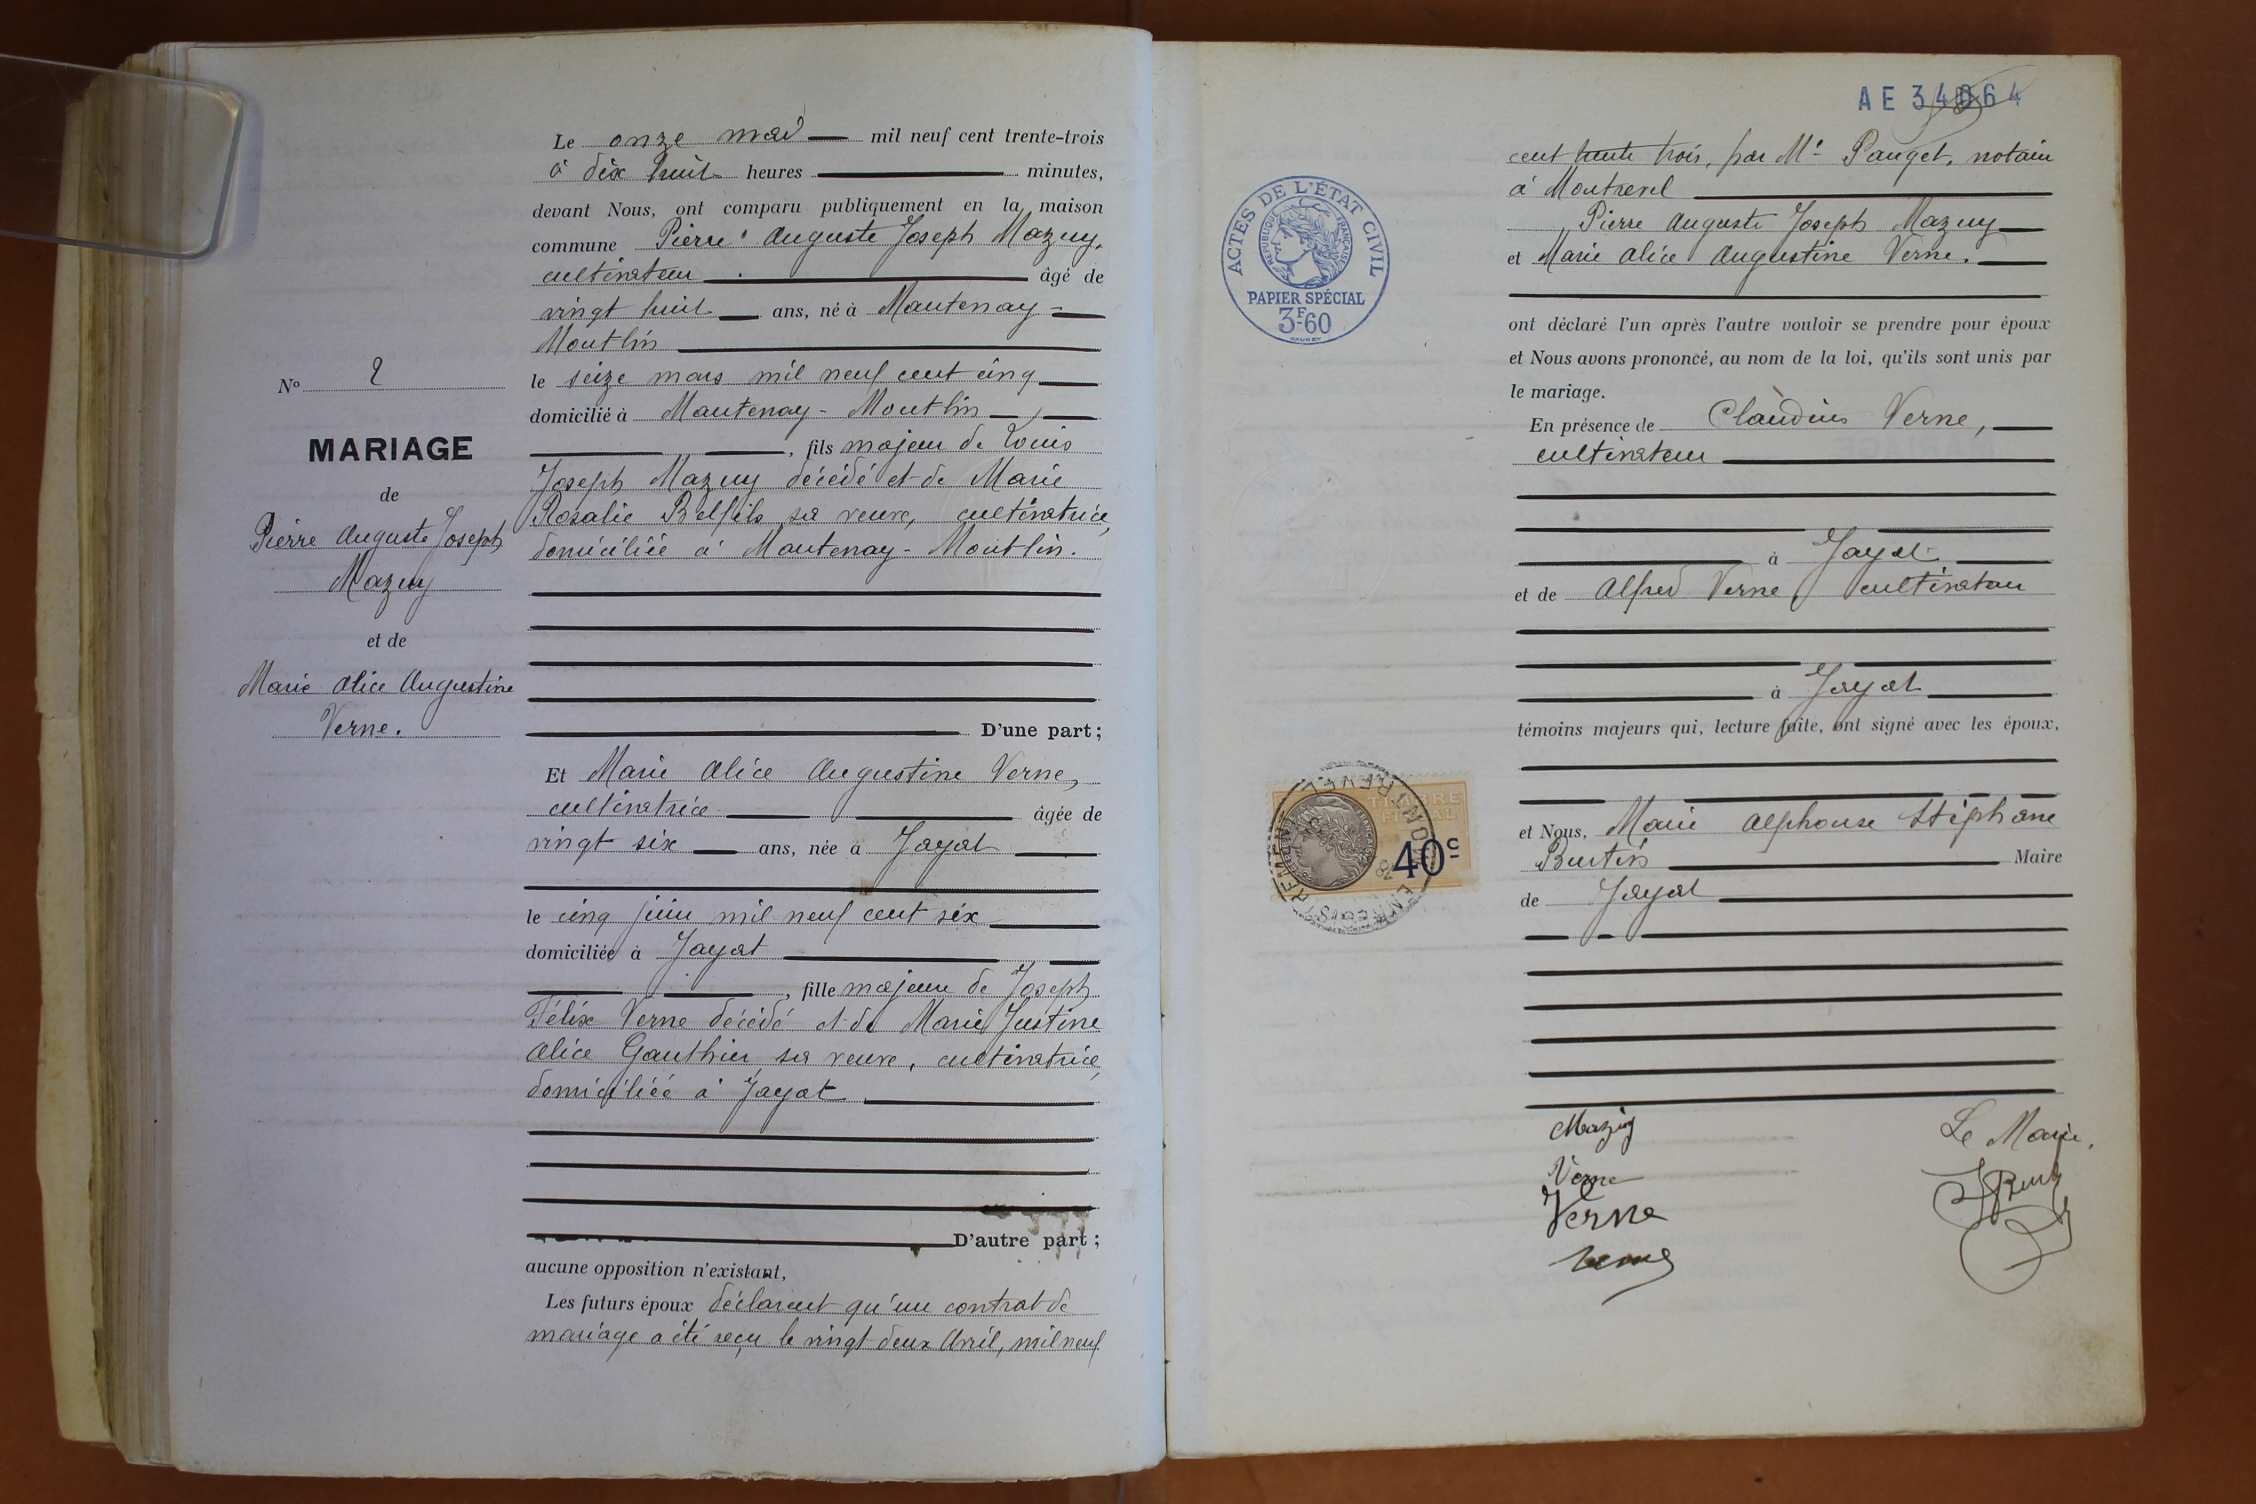 Le onze mai mil neuf cent trente-trois
à dix huit heures minutes,
devant Nous, ont comparu publiquement en la maison
commune Pierre Auguste Joseph Mazuy,
cultivateur âgé de
vingt huit ans, né à Mantenay-
Montlin
le seize mars mil neuf cent cinq
domicilié à Mantenay-Montlin,
, fils majeur de Louis
Joseph Mazuy décédé et de Marie
Rosalie Belfils sa veuve, cultivatrice,
domiciliée à Mantenay-Montlin.
D'une part;
Nº 2
MARIAGE
de
Pierre Auguste Joseph
Mazuy
et de
Marie Alice Augustine
Verne.
Et Marie Alice Augustine Verne,
cultivatrice âgée de
vingt six ans, née à Jayat
le cinq juin mil neuf cent six
domiciliée à Jayat
, fille majeure de Joseph
Félix Verne décédé et de Marie Justine
Alice Gauthier sa veuve, cultivatrice,
domiciliée à Jayat
D'autre part;
aucune opposition n'existant,
Les futurs époux déclarent qu'un contrat de
mariage a été reçu le vingt deux Avril, mil neuf
AE 34064
cent trente trois, par Me Pauget, notaire
à Montrevel
Pierre Auguste Joseph Mazuy
et Marie Alice Augustine Verne.
ont déclaré l'un après l'autre vouloir se prendre pour époux
et Nous avons prononcé, au nom de la loi, qu'ils sont unis par
le mariage.
En présence de Claudius Verne,
cultivateur
à Jayat
et de Alfred Verne, cultivateur
à Jayat
témoins majeurs qui, lecture faite, ont signé avec les époux,
et Nous, Marie Alphonse Stéphane
Burtin Maire
de Jayat
Mazuy
Verne
Verne
Verne
Le Maire,
ACTES DE L'ÉTAT CIVIL
RÉPUBLIQUE FRANÇAISE
PAPIER SPÉCIAL
3F60
TIMBRE
FISCAL
40c
ENREGISTREMENT
MONTREVEL